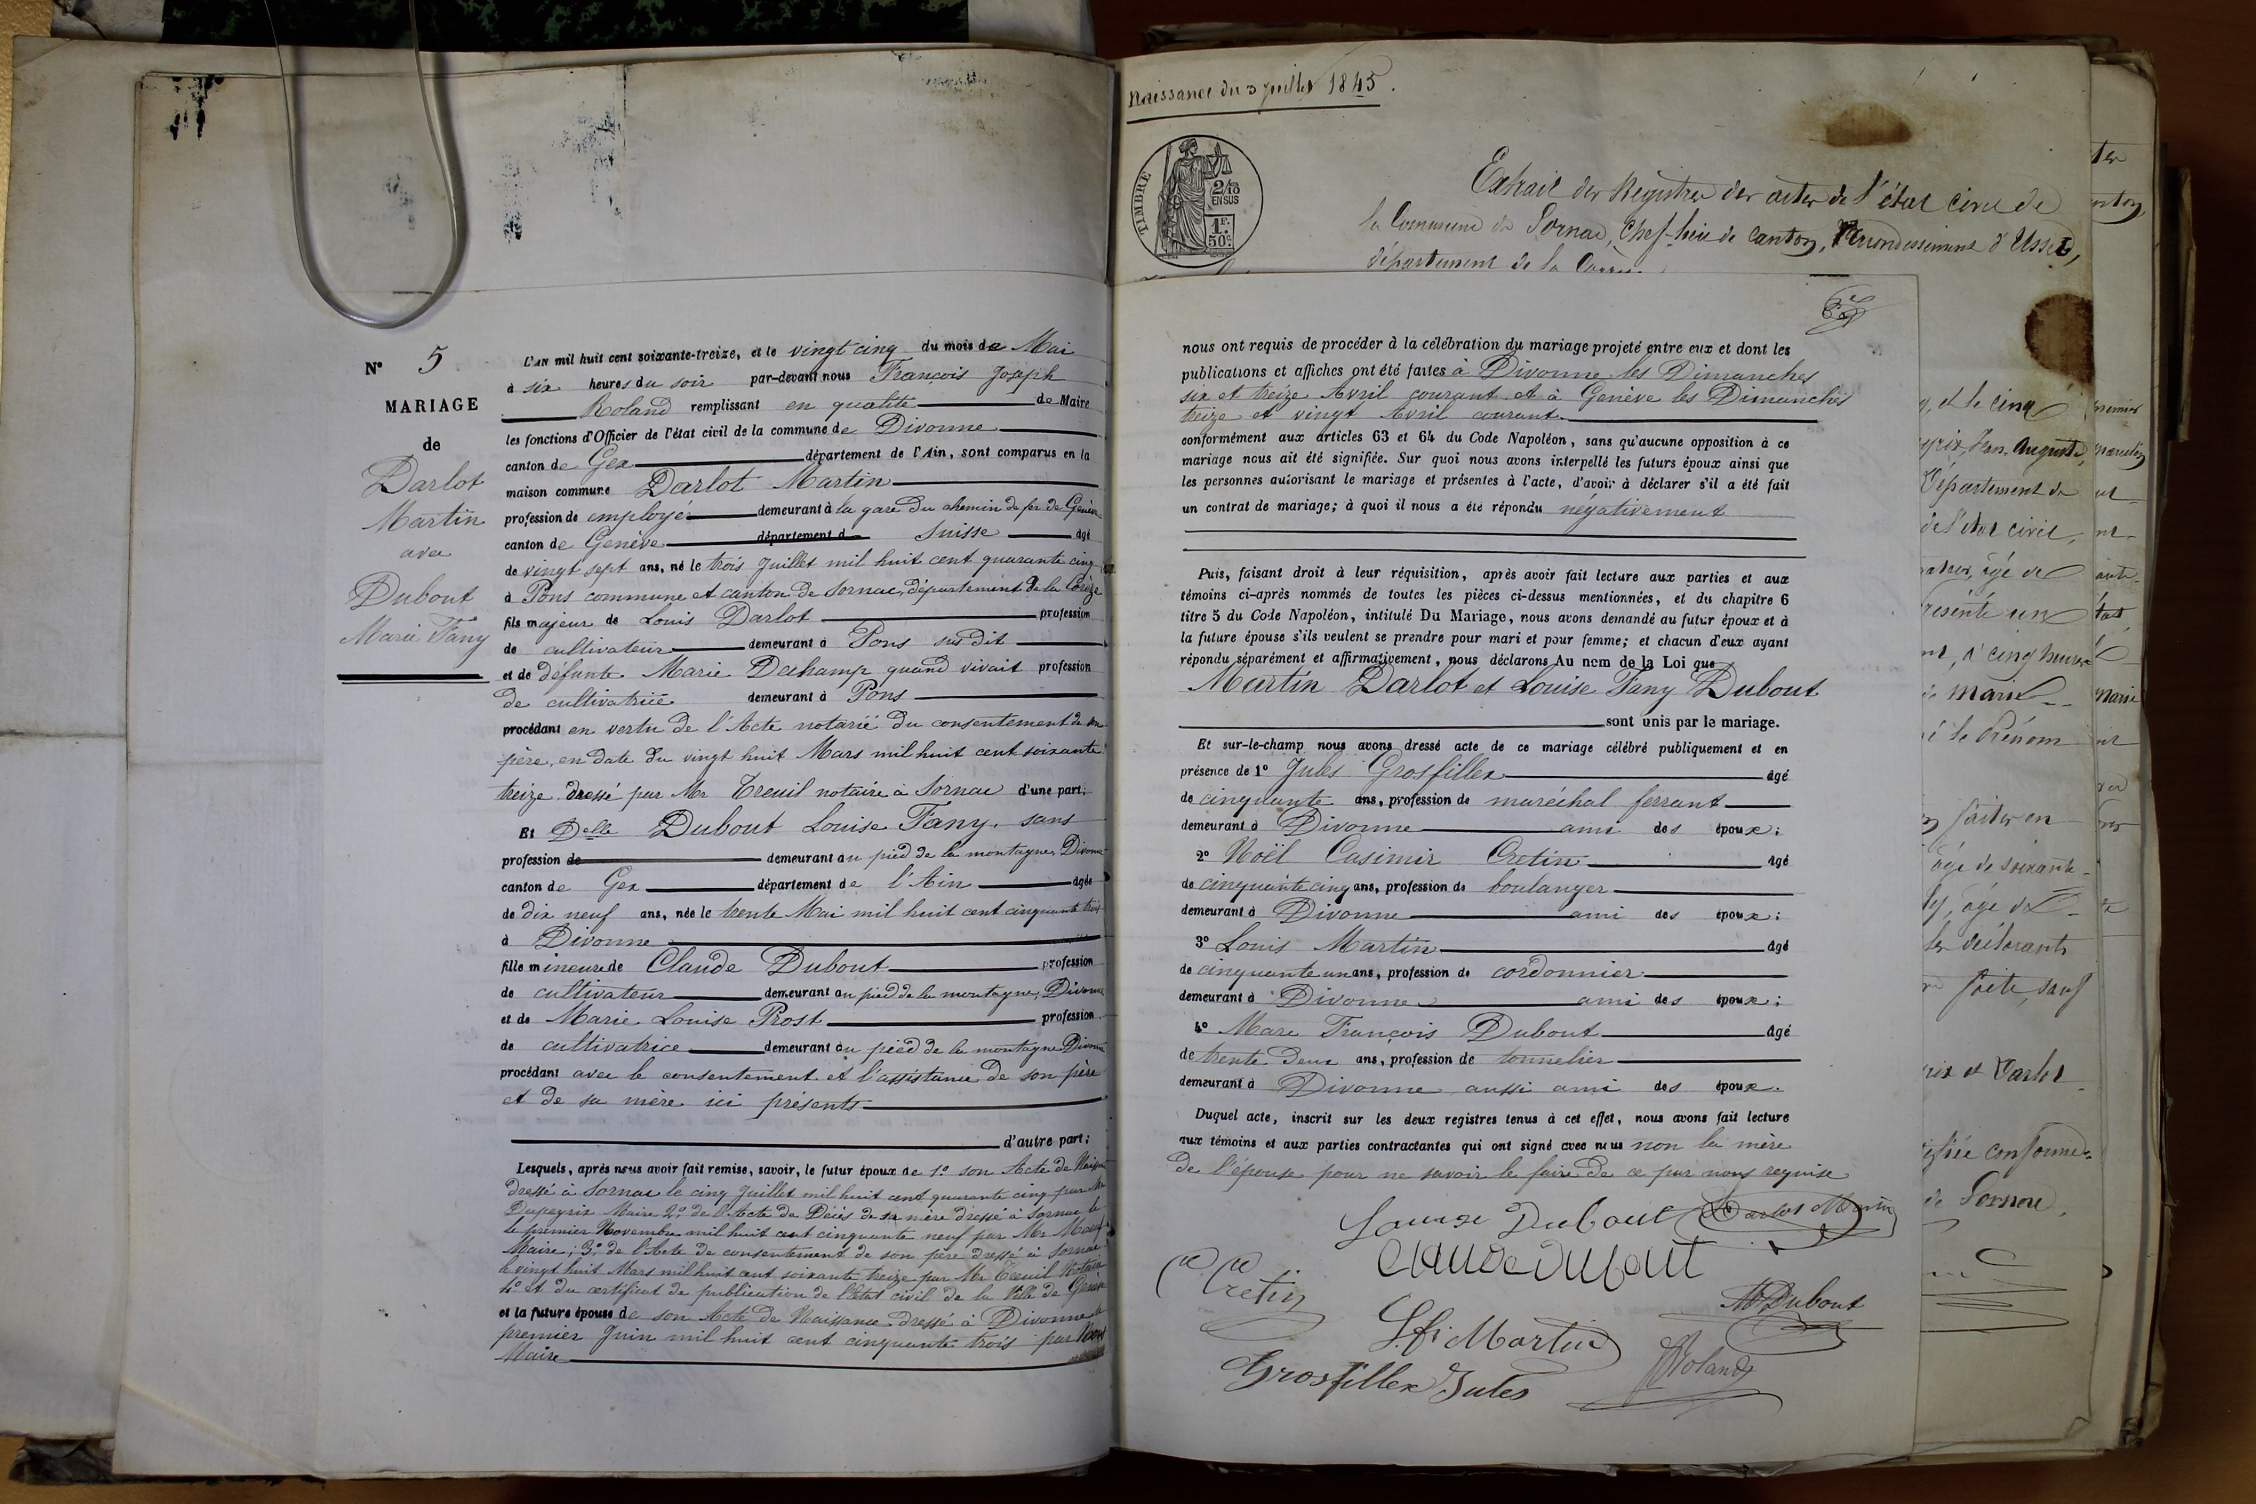 N° 5
MARIAGE
de
Darlot
Martin
avec
Dubout
Marie Fany
L'AN mil huit cent soixante-treize, et le vingt cinq du mois de Mai
à six heures du soir par-devant nous François Joseph
Roland remplissant en qualité de Maire
les fonctions d'Officier de l'état civil de la commune de Divonne
canton de Gex département de l'Ain, sont comparus en la
maison commune Darlot Martin
profession de employé demeurant à la gare du chemin de fer de Genève
canton de Genève département d Suisse agé
de vingt sept ans, né le trois Juillet mil huit cent quarante cinq
à Pons commune et canton de Sornac, département de la Corrèze
fils majeur de Louis Darlot profession
de cultivateur demeurant à Pons susdit
et de défunte Marie Dechamp quand vivait profession
de cultivatrice demeurant à Pons
procédant en vertu de l'Acte notarié du consentement de son
père, en date du vingt huit Mars mil huit cent soixante
treize dressé par Mr Treuil notaire à Sornac d'une part;
Et Delle Dubout Louise Fany. sans
profession de demeurant au pied de la montagne, Divonne
canton de Gex département de l'Ain agée
de dix neuf ans, née le trente Mai mil huit cent cinquante trois
à Divonne
fille mineure de Claude Dubout profession
de cultivateur demeurant au pied de la montagne, Divonne
et de Marie Louise Prost profession
de cultivatrice demeurant au pied de la montagne Divonne
procédant avec le consentement et l'assistance de son père
et de sa mère ici présents
d'autre part;
Lesquels, après nous avoir fait remise, savoir, le futur époux de 1° son Acte de Naissance
dressé à Sornac le cinq Juillet mil huit cent quarante cinq par Mr
Dupeyrix Maire 2° de l'Acte de Décès de sa mère dressé à Sornac le
le premier Novembre mil huit cent cinquante neuf par Mr
Maire; 3° de l'Acte de consentement de son père dressé à Sornac
le vingt huit Mars mil huit cent soixante treize par Mr Treuil Notaire
4° et du certificat de publication de l'état civil de la Ville de Genève
et la future épouse de son Acte de Naissance dressé à Divonne le
premier Juin mil huit cent cinquante trois par
Maire
Naissance du 3 Juillet 1845.
TIMBRE
2/10
EN SUS
1F.
50c.
Extrait des Registres des actes de l'état civil de
la Commune de Sornac, Chef-lieu de canton, Arrondissement d'Ussel,
département de la Corrèze
nous ont requis de procéder à la célébration du mariage projeté entre eux et dont les
publications et affiches ont été faites à Divonne les Dimanches
six et treize Avril courant et à Genève les Dimanches
treize et vingt Avril courant.
conformément aux articles 63 et 64 du Code Napoléon, sans qu'aucune opposition à ce
mariage nous ait été signifiée. Sur quoi nous avons interpellé les futurs époux ainsi que
les personnes autorisant le mariage et présentes à l'acte, d'avoir à déclarer s'il a été fait
un contrat de mariage; à quoi il nous a été répondu négativement
Puis, faisant droit à leur réquisition, après avoir fait lecture aux parties et aux
témoins ci-après nommés de toutes les pièces ci-dessus mentionnées, et du chapitre 6
titre 5 du Code Napoléon, intitulé Du Mariage, nous avons demandé au futur époux et à
la future épouse s'ils veulent se prendre pour mari et pour femme; et chacun d'eux ayant
répondu séparément et affirmativement, nous déclarons Au nom de la Loi que
Martin Darlot et Louise Fany Dubout
sont unis par le mariage.
Et sur-le-champ nous avons dressé acte de ce mariage célébré publiquement et en
présence de 1° Jules Grosfillex agé
de cinquante ans, profession de maréchal ferrant
demeurant à Divonne ami des époux;
2° Noël Casimir Cretin agé
de cinquante cinq ans, profession de boulanger
demeurant à Divonne ami des époux;
3° Louis Martin agé
de cinquante un ans, profession de cordonnier
demeurant à Divonne ami des époux;
4° Marc François Dubout agé
de trente deux ans, profession de tonnelier
demeurant à Divonne aussi ami des époux.
Duquel acte, inscrit sur les deux registres tenus à cet effet, nous avons fait lecture
aux témoins et aux parties contractantes qui ont signé avec nous non la mère
de l'épouse pour ne savoir le faire de ce par nous requise
Louise Dubout Darlot Martin
Claude Dubout
Cretin
M Dubout
Martin
Roland
Grosfillex Jules
, et le cinq
Auguste,
Département de
de l'état civil,
âgé de
présenté un
, à cinq heures
de marie
le Prénom
faites en
âgé de soixante-
, âgé de
les déclarants
faite, sauf
et Darlot
conforme.
de Sornac,